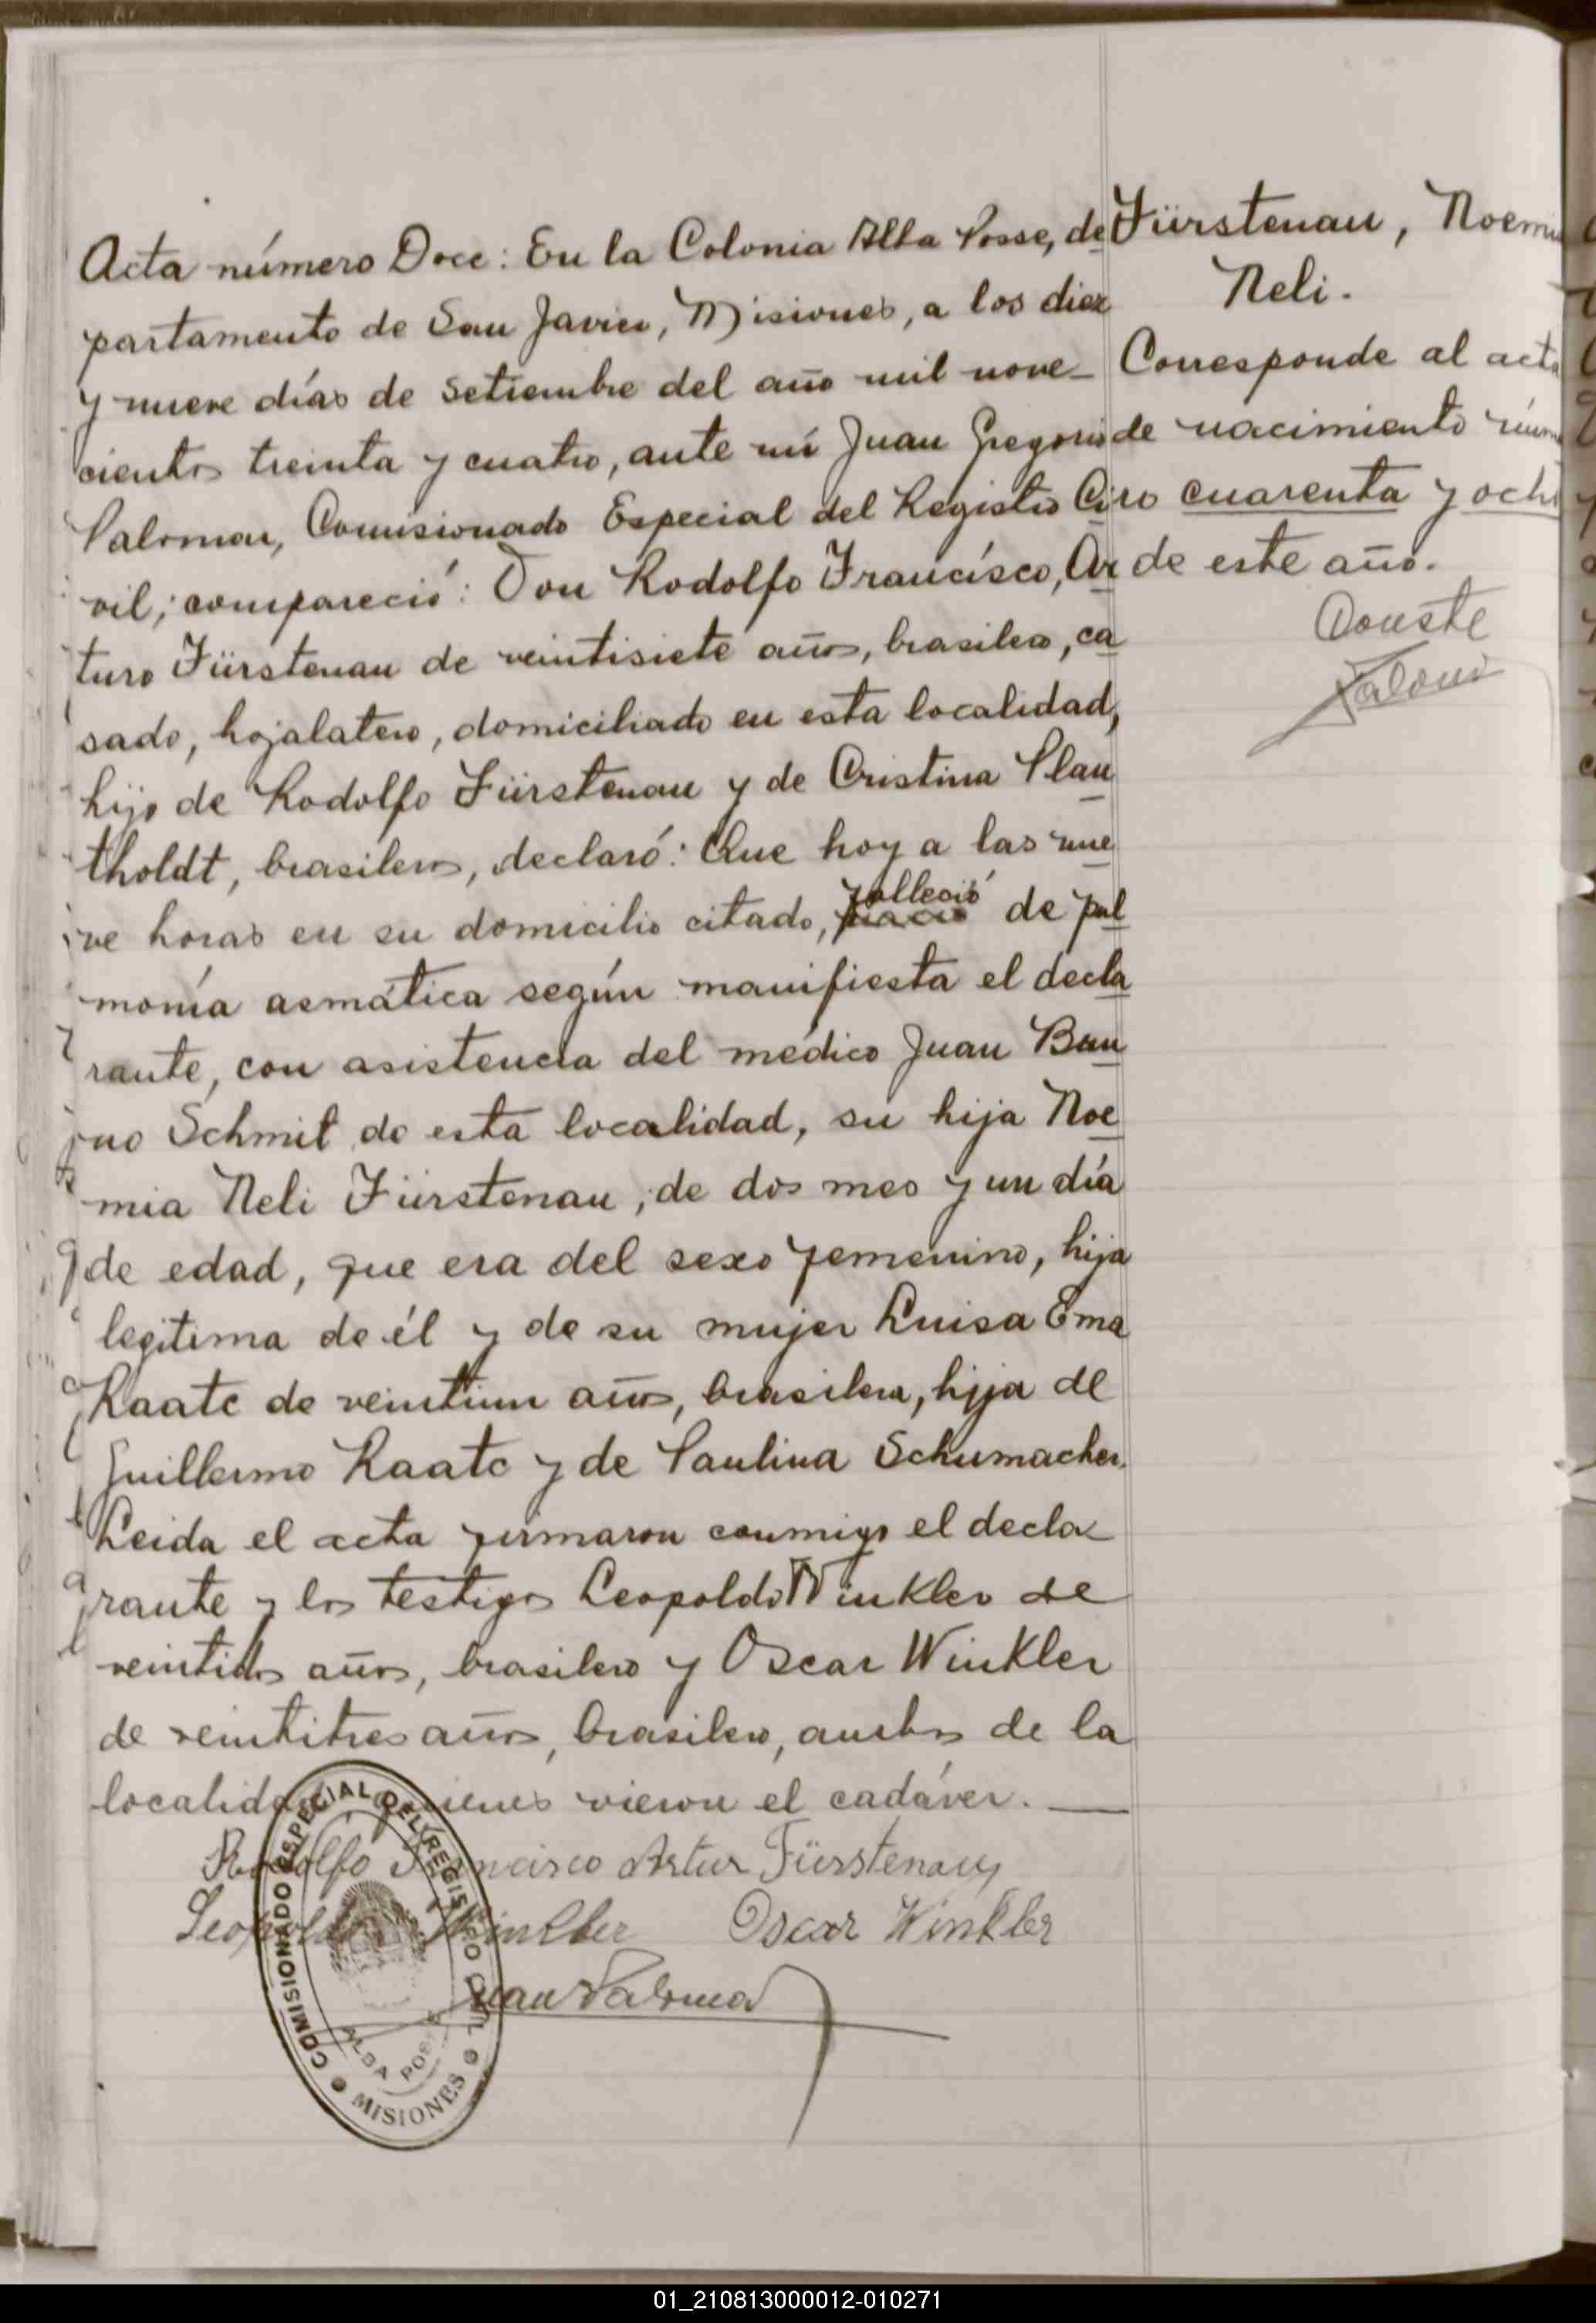 Acta número Doce: En la Colonia Alba Posse, de
partamento de San Javier, Misiones, a los diez
y nueve días de Setiembre del año mil nove-
cientos treinta y cuatro, ante mí Juan Gregorio
Palomar, Comisionado Especial del Registro Ci
vil; compareció: Don Rodolfo Francísco, Ar
turo Fürstenau de veintisiete años, brasilero, ca
sado, hojalatero, domiciliado en esta localidad,
hijo de Rodolfo Fürstenau y de Cristina Plan
tholdt, brasileros, declaró: Que hoy a las nue
ve horas en su domicilio citado, falleció de pul
monía asmática según manifiesta el decla
rante, con asistencia del médico Juan Bru
no Schmit de esta localidad, su hija Noe
mia Neli Fürstenau, de dos mes y un día
de edad, que era del sexo femenino, hija
legítima de él y de su mujer Luisa Ema
Raatc de veintiun años, brasilera, hija de
Guillermo Raatc y de Paulina Schumacher.
Leida el acta firmaron conmigo el decla
rante y los testigos Leopoldo Winkler de
veintidos años, brasilero y Oscar Winkler
de veintitres años, brasilero, ambos de la
localidad quienes vieron el cadáver.
Rodolfo Francisco Artur Fürstenau
Leopoldo Winkler Oscar Winkler
Juan Palomar
COMISIONADO ESPECIAL DEL REGISTRO CIVIL
ALBA POSSE
MISIONES
Fürstenau, Noemia
Neli.
Corresponde al acta
de nacimiento núme
ro cuarenta y ocho
de este año.
Conste
01_210813000012-010271